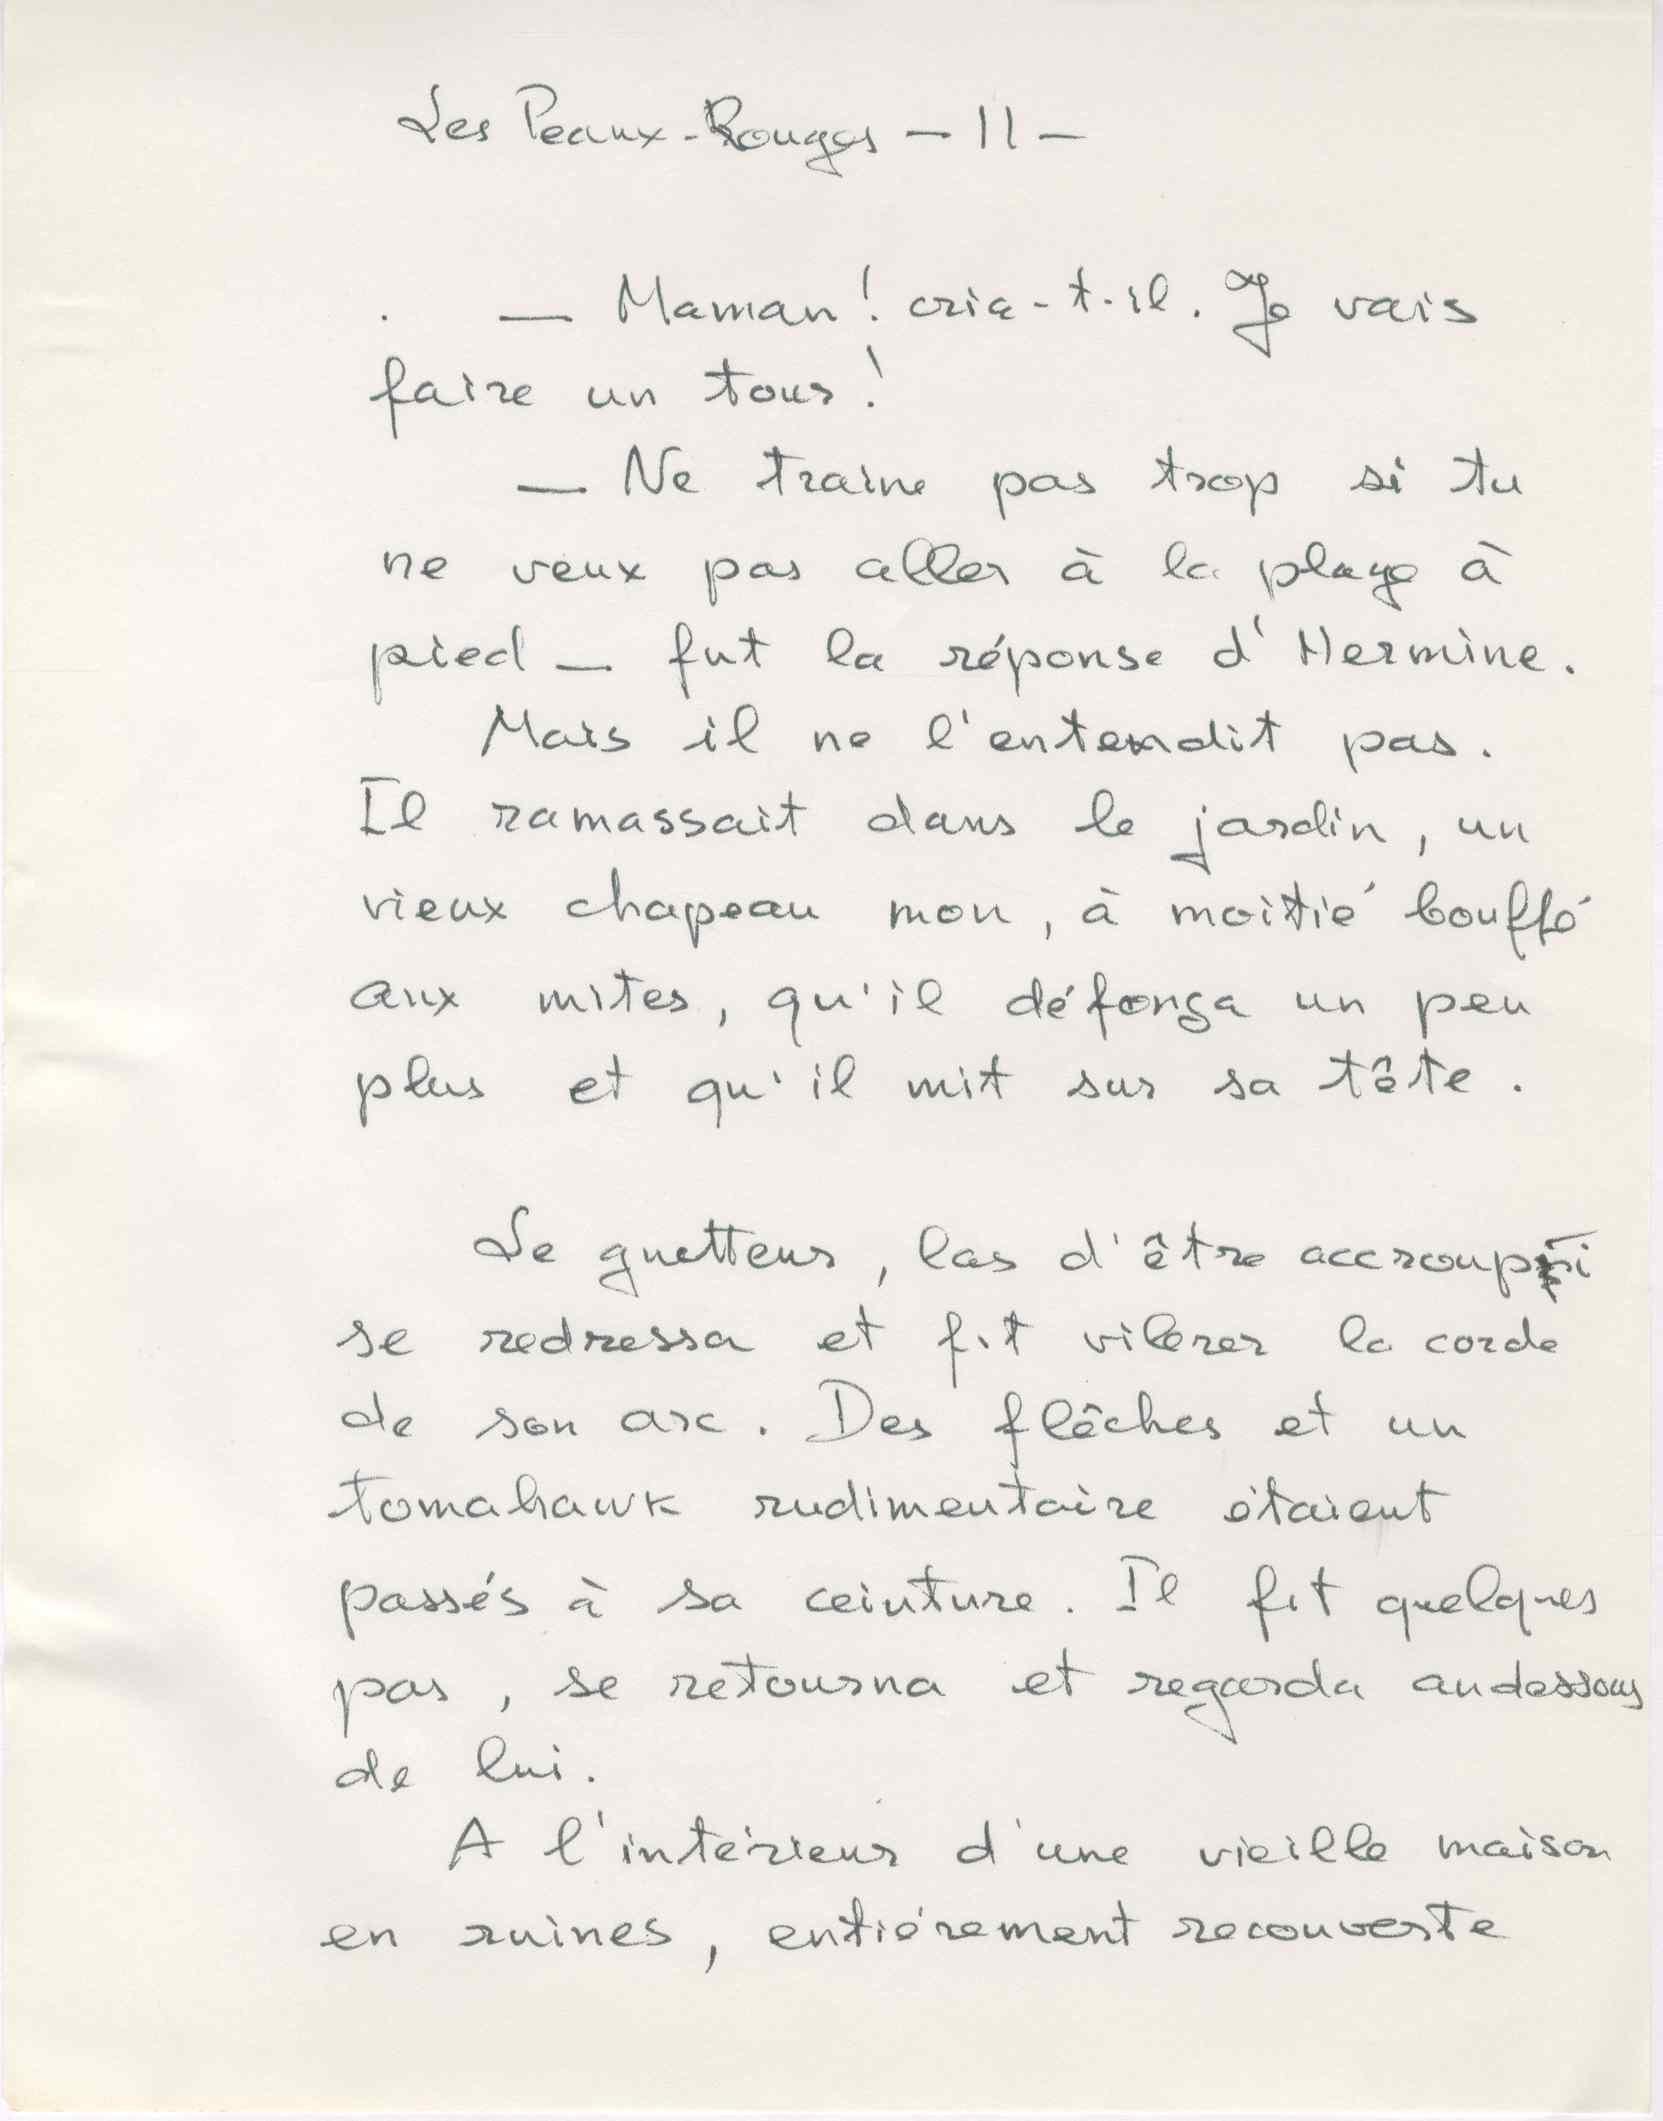 Les Peaux-Rouges - 11 -
- Maman ! cria-t-il. Je vais
faire un tour !
- Ne traine pas trop si tu
ne veux pas aller à la plage à
pied - fut la réponse d'Hermine.
Mais il ne l'entendit pas.
Il ramassait dans le jardin, un
vieux chapeau mou, à moitié bouffé
aux mites, qu'il défonça un peu
plus et qu'il mit sur sa tête.
Le guetteur, las d'être accroupi
se redressa et fit vibrer la corde
de son arc. Des flêches et un
tomahawk rudimentaire étaient
passés à sa ceinture. Il fit quelques
pas, se retourna et regarda audessous
de lui.
A l'intérieur d'une vieille maison
en ruines, entiérement recouverte